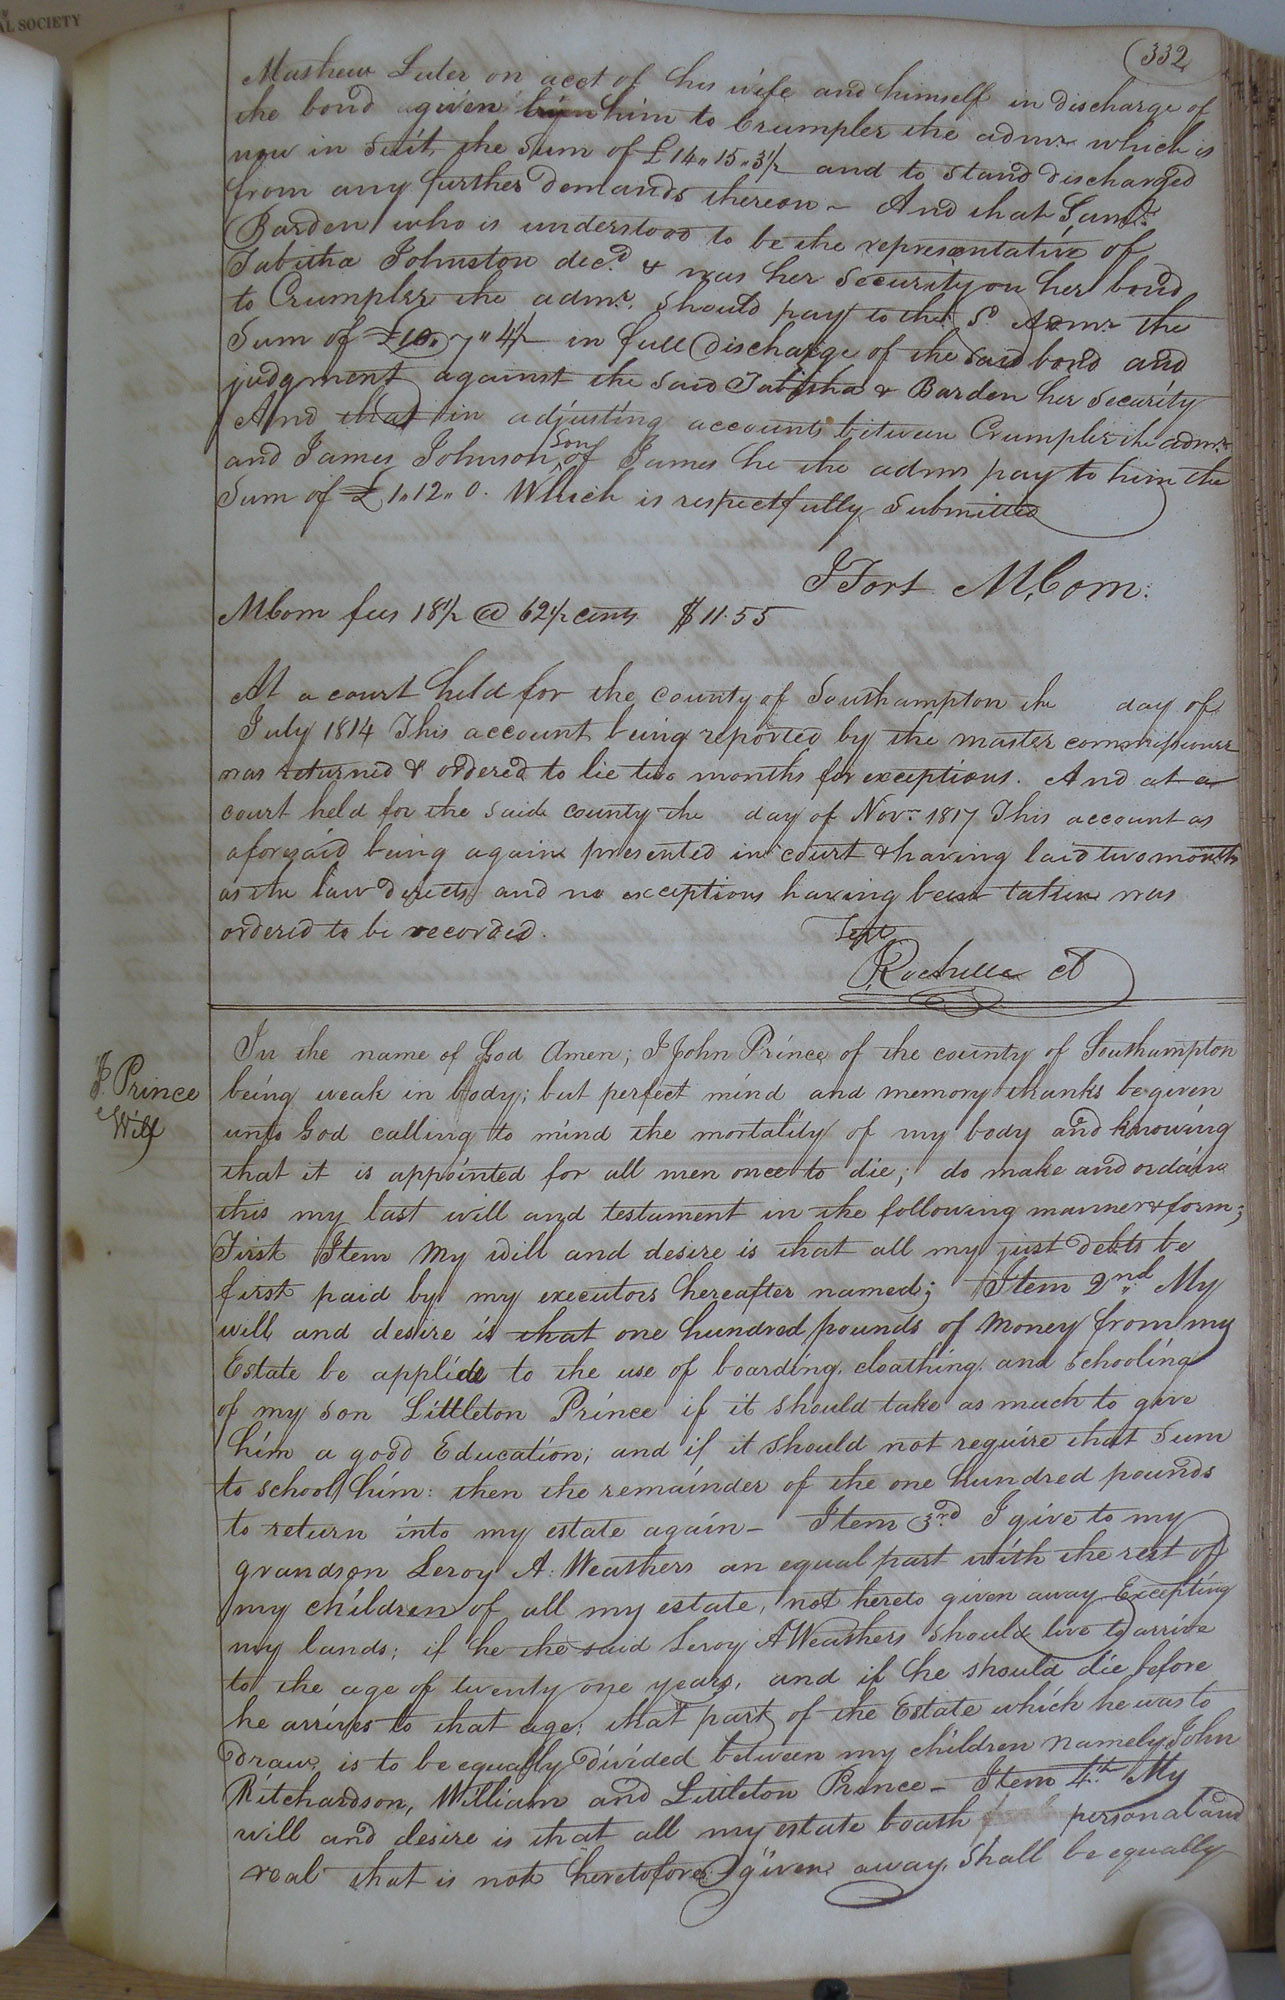 AL SOCIETY
332
Mathew Luter on acct of his wife and himself in discharge of
the bond given by him to Crumpler the admr. which is
now in suit, the sum of £14,,15,,3½ and to stand discharged
from any further demands thereon – And that Saml.
Barden who is understood to be the representative of
Tabitha Johnston decd. & was her security on her bond
to Crumpler the admr. should pay to the sd. Admr. the
Sum of £10,,7,,4½ in full discharge of the said bond and
judgment against the said Tabitha & Barden her security
And that in adjusting accounts between Crumpler the admr.
and James Johnson son of James he the admr pay to him the
Sum of £1,,12,,0. Which is respectfully Submitted
J Fort M,Com:
MCom fees 18½ @ 62½ cents $11.55
At a court held for the county of Southampton the day of
July 1814 This account being reported by the master commissioner
was returned & ordered to lie two months for exceptions. And at a
court held for the said county the day of Novr. 1817 This account as
aforesaid being again presented in court & having laid two months
as the law directs and no exceptions having been taken was
ordered to be recorded. Test
Rochelle ct
J. Prince
Will
In the name of God Amen; I John Prince of the county of Southampton
being weak in body; but perfect mind and memory thanks be given
unto God calling to mind the mortality of my body and knowing
that it is appointed for all men once to die; do make and ordain
this my last will and testament in the following manner & form;
First Item My will and desire is that all my just debts be
first paid by my executors hereafter named; Item 2nd. My
will and desire is that one hundred pounds of Money from my
Estate be applide to the use of boarding, cloathing, and Schooling
of my son Littleton Prince if it should take as much to give
him a good Education; and if it should not require that Sum
to school him: then the remainder of the one hundred pounds
to return into my estate again – Item 3rd I give to my
grandson Leroy A. Weathers an equal part with the rest of
my children of all my estate, not hereto given away Excepting
my lands; if he the said Leroy A Weathers should live to arrive
to the age of twenty one years, and if he should die before
he arrives to that age; that part of the Estate which he was to
draw is to be equally divided between my children namely John
Ritchardson, William and Littleton Prince – Item 4th My
will and desire is that all my estate boath personal and
real that is not heretofore given away Shall be equally